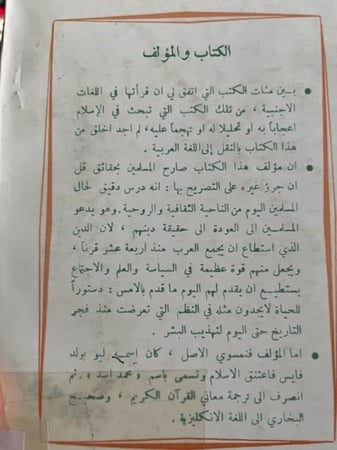 الكتاب والمؤلف
• بين مئات الكتب التي اتفق لي ان قرأتها في اللغات
الاجنبية ، من تلك الكتب التي تبحث في الإسلام
اعجاباً به او تحليلا له او تهجماً عليه، لم اجد اخلق من
هذا الكتاب بالنقل إلى اللغة العربية .
• ان مؤلف هذا الكتاب صارح المسلمين بحقائق قل
ان جرؤ غيره على التصريح بها : انه درس دقيق لحال
المسلمين اليوم من الناحية الثقافية والروحية. وهو يدعو
المسلمين الى العودة الى حقيقة دينهم ، لان الدين
الذي استطاع ان يجمع العرب منذ اربعة عشر قرناً ،
ويجعل منهم قوة عظيمة في السياسة والعلم والاجتماع
يستطيع ان يقدم لهم اليوم ما قدم بالامس : دستوراً
للحياة لا يجدون مثله في النظم التي تعرضت منذ فجر
التاريخ حتى اليوم لتهذيب البشر .
• اما المؤلف فنمسوي الاصل ، كان إسمه ليو بولد
فايس فاعتنق الاسلام وتسمى باسم «محمد اسد» . ثم
انصرف الى ترجمة معاني القرآن الكريم ، وصحيح
البخاري الى اللغة الانكليزية .